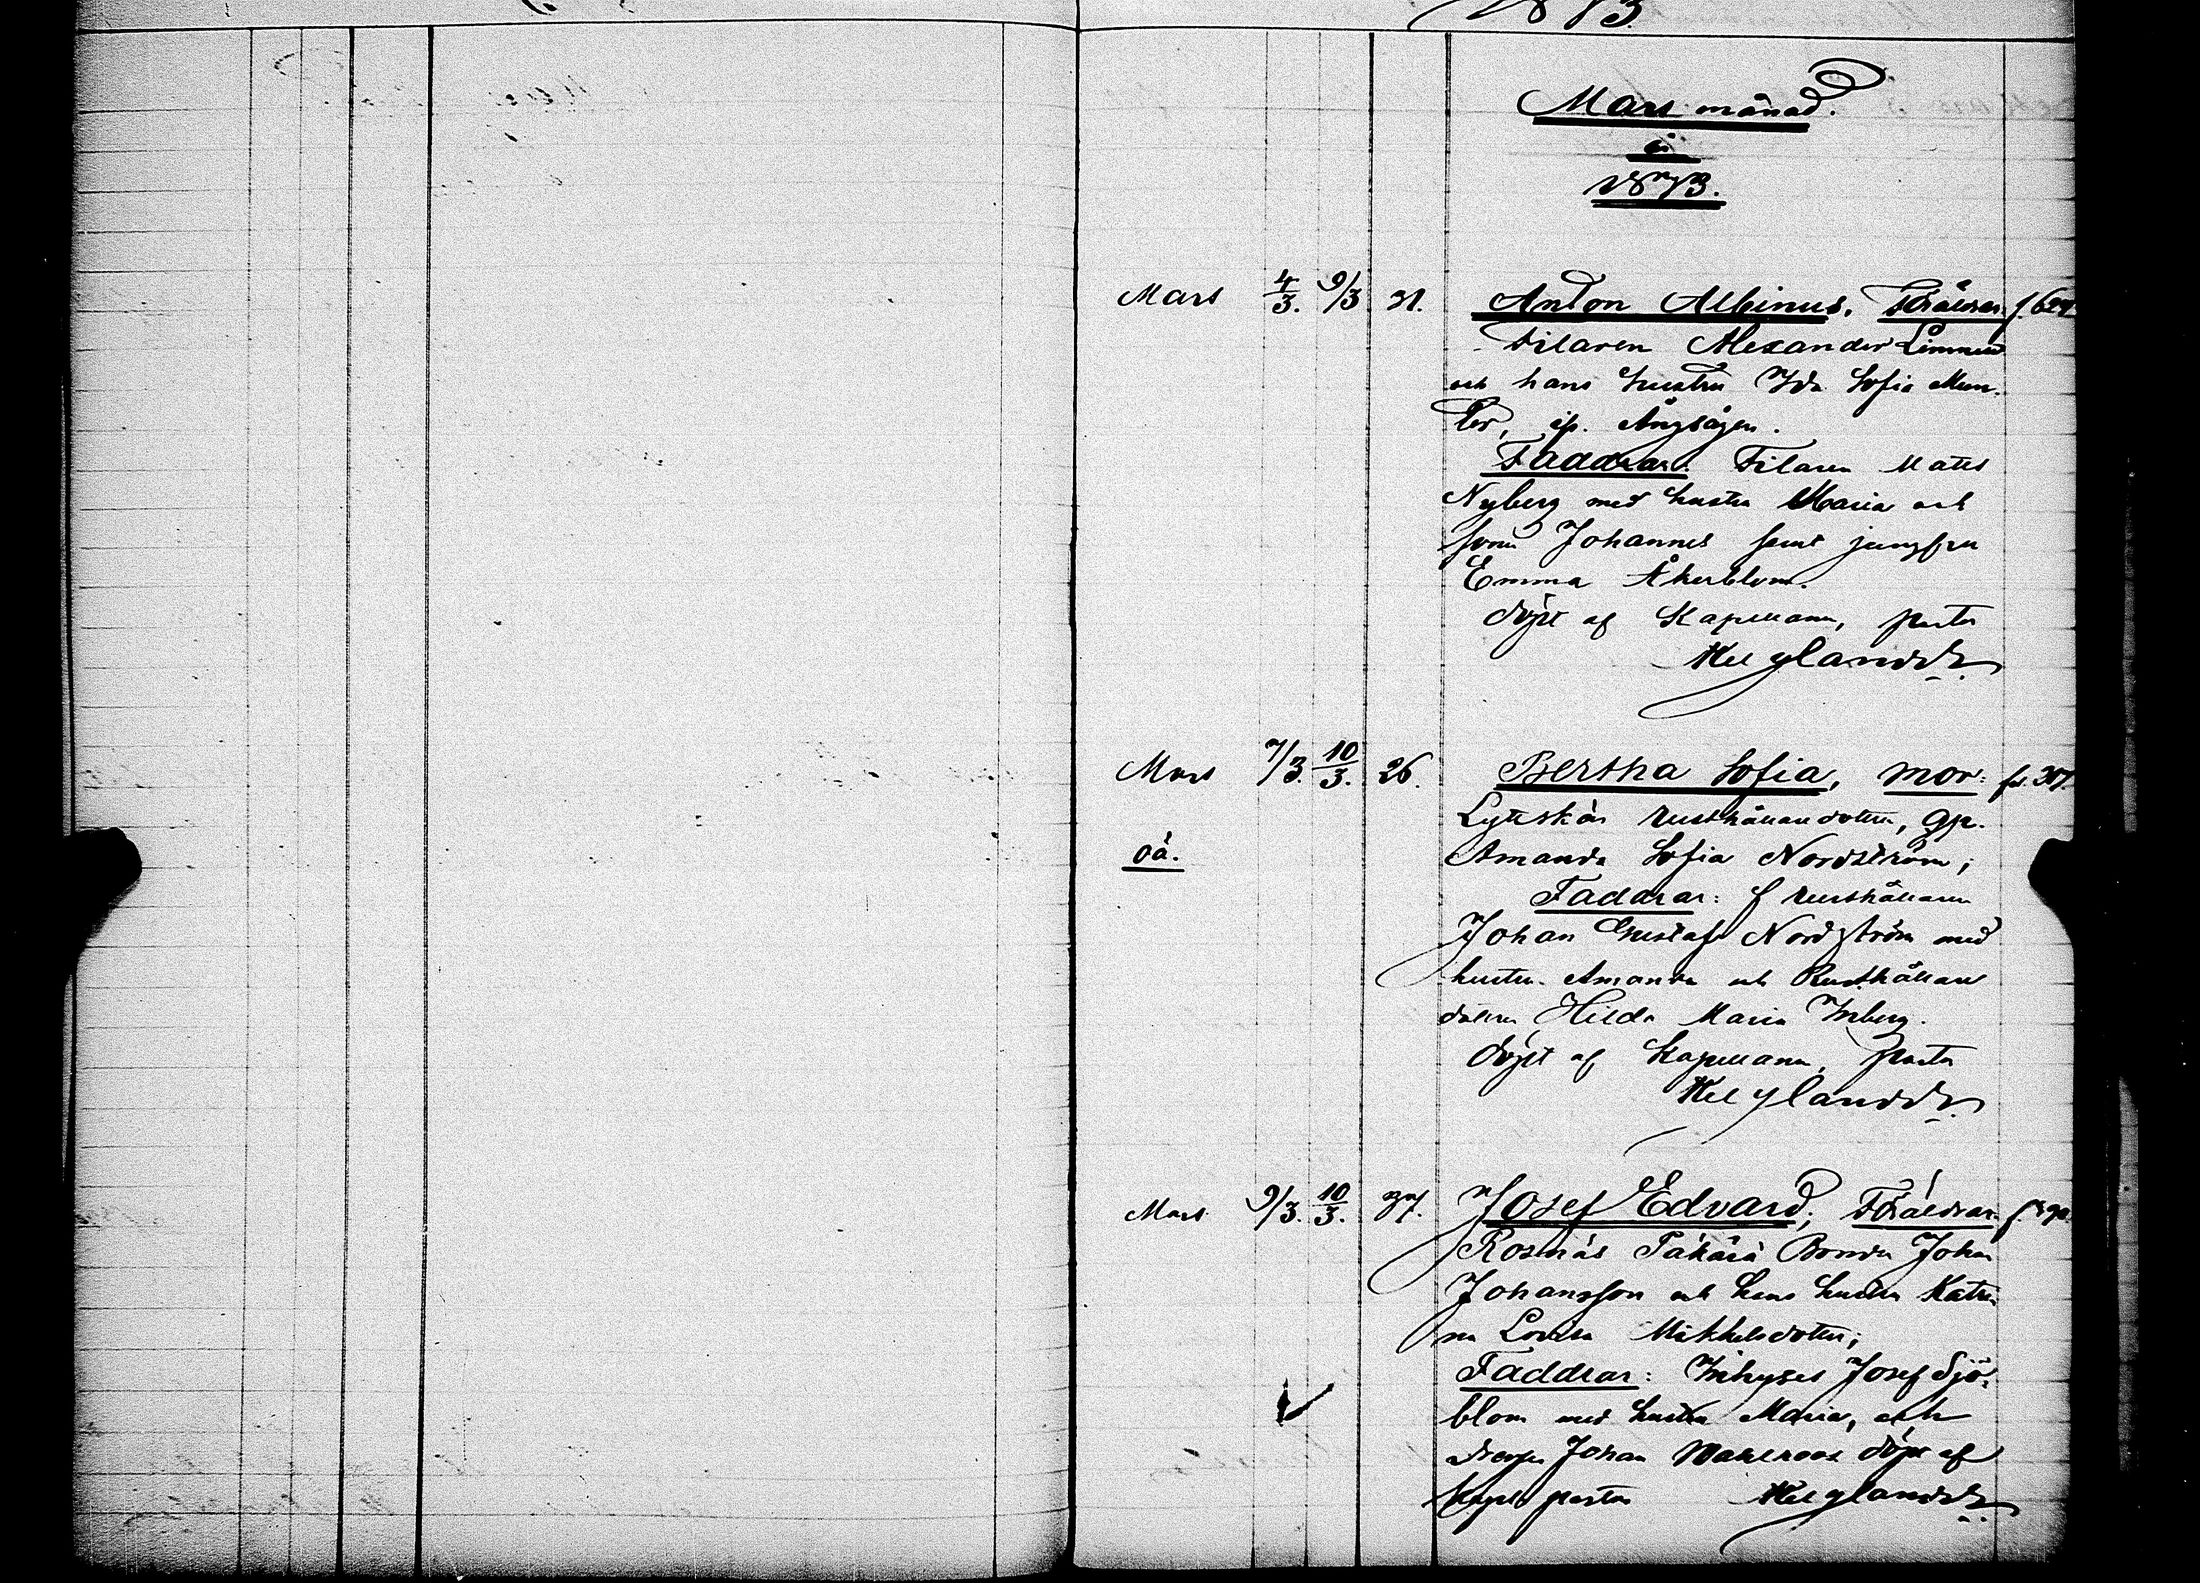 1873.
Mars månad.
i
1873.
Mars 4/3. 9/3 31. Anton Albinus. Föräldrar f. 624.
Filaren Alexander
och hans hustru Ida Sofia Mun-
ter, ip. Ångsågen.
Faddrar: Filaren Matts
Nyberg med hustru Maria och
sonen Johannes samt jungfru
Emma Åkerblom.
döpt af Kapellanen, pastor
Helglander.
Mars 7/3. 10/3. 26. Bertha Sofia, mor: fol. 307.
Lyttskär rusthållaredottern, qp.
oä. Amanda Sofia Nordström;
Faddrar: f rusthållaren
Johan Gustaf Nordström med
hustru Amanda och Rusthållare
dottren Hilda Maria Inberg.
döpt af Kapellanen, pastor
Helglander.
Mars 9/3. 10/3. 37. Josef Edvard; Föräldrar f.
Rosnäs Bonden Johan
Johansson och hans hustru Katri-
na Lovisa Mikkelsdotter;
Faddrar: Inhyses Josef Sjö-
blom med hustru Maria, och
drengen Johan Wahlroos döpt af
Kapell. pastor Helglander